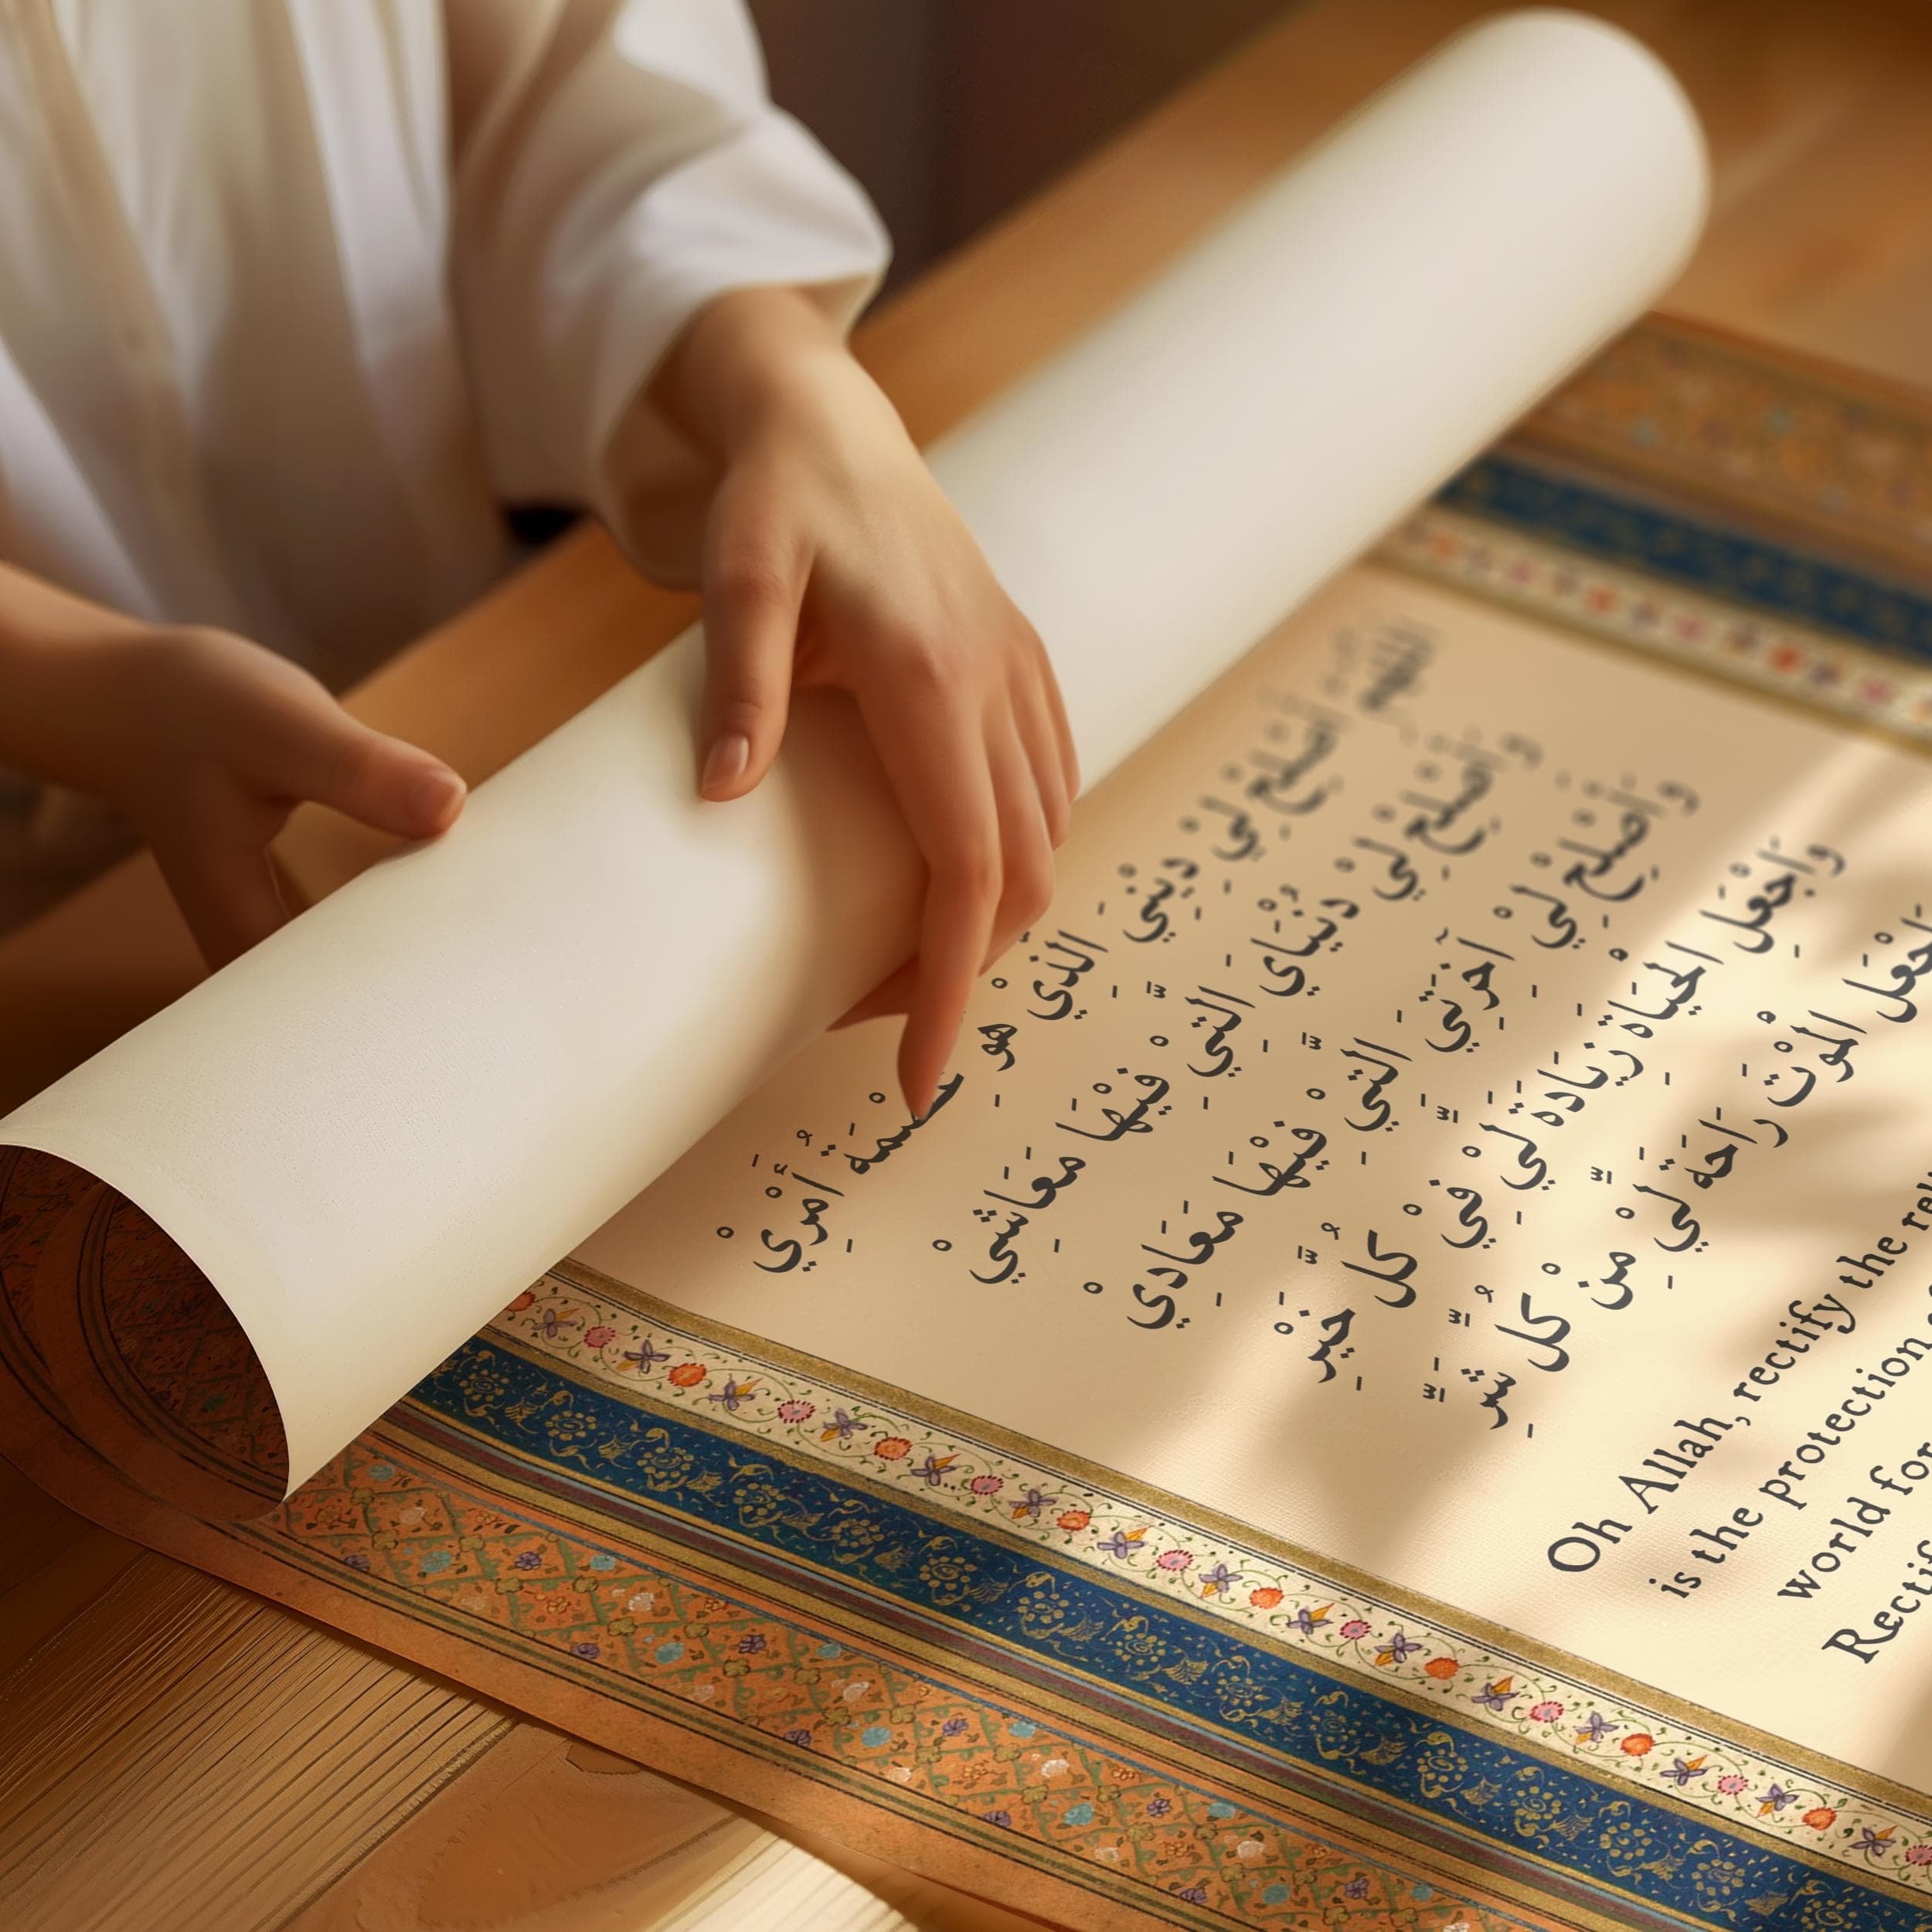 اللَّهُمَّ أَصْلِحْ لِيْ دِيْنِيَ الَّذِيْ هُوَ عِصْمَةُ أَمْرِيْ
وَأَصْلِحْ لِيْ دُنْيَايَ الَّتِيْ فِيْهَا مَعَاشِيْ
وَأَصْلِحْ لِيْ آخِرَتِيَ الَّتِيْ فِيْهَا مَعَادِيْ
وَاجْعَلِ الْحَيَاةَ زِيَادَةً لِّيْ فِيْ كُلِّ خَيْرٍ
وَاجْعَلِ الْمَوْتَ رَاحَةً لِّيْ مِنْ كُلِّ شَرٍّ
Oh Allah, rectify the
is the protection
world for